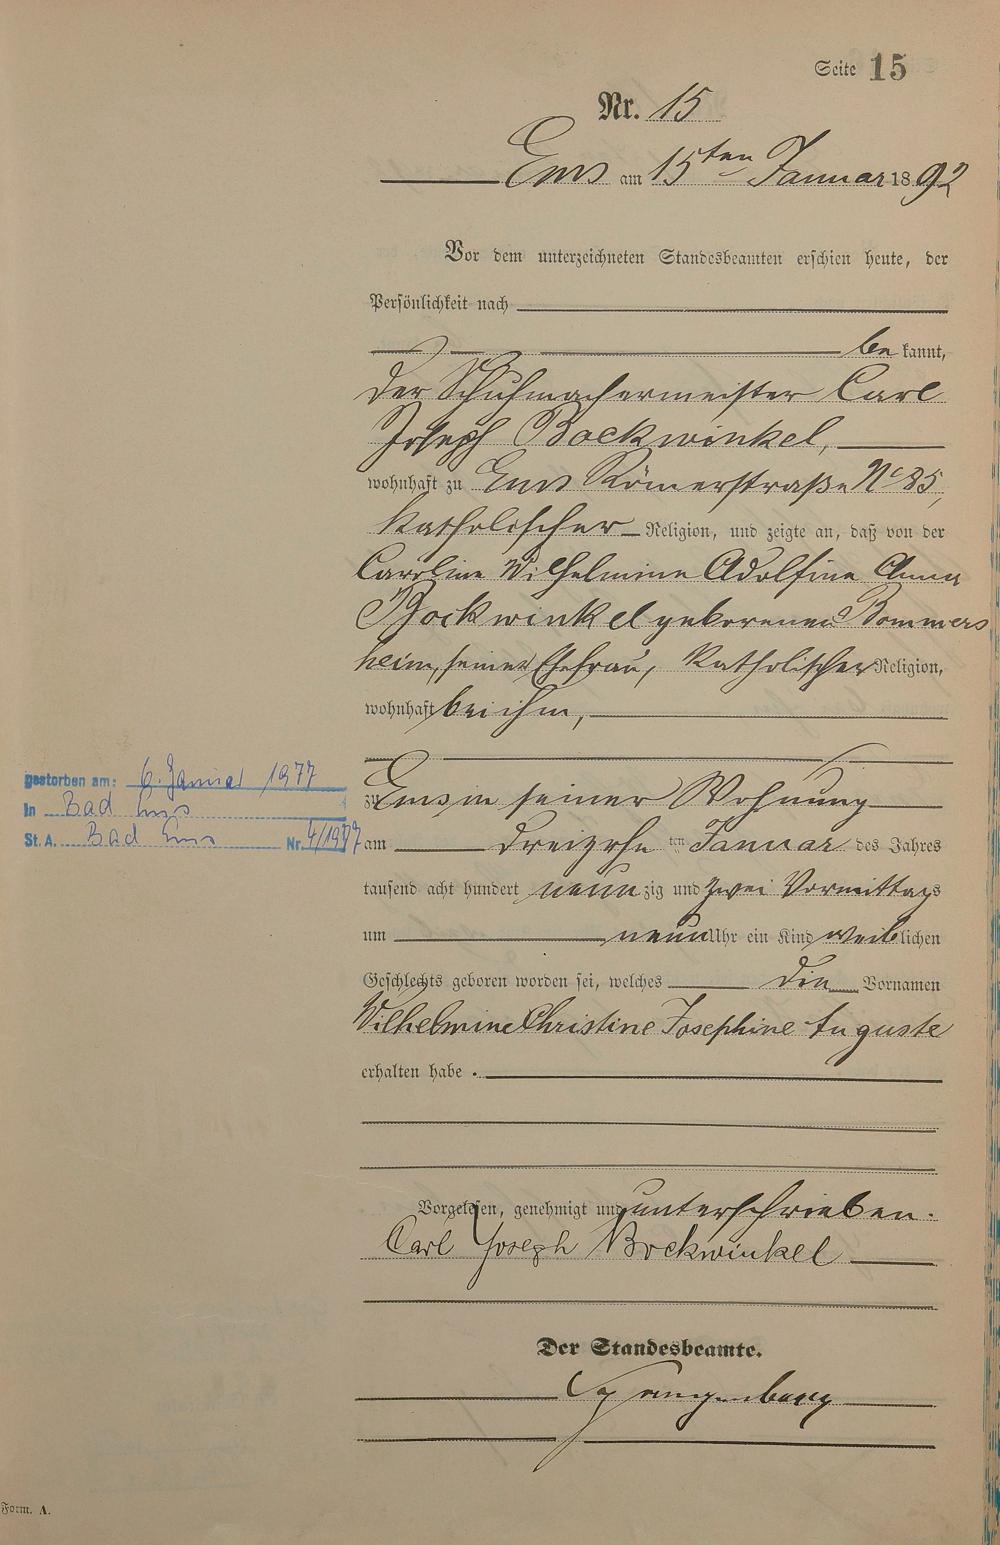 Seite 15
Nr. 15
Ems am 15ten Januar 1892
Vor dem unterzeichneten Standesbeamten erschien heute, der
Persönlichkeit nach
bekannt,
der Schuhmachermeister Carl
Joseph Bockwinkel,
wohnhaft zu Ems Römerstraße No 85,
katholischer Religion, und zeigte an, daß von der
Caroline Wilhelmine Adolfine Anna
Bockwinkel geborenen Bommers
heim, seiner Ehefrau, katholischer Religion,
wohnhaft bei ihm,
zu Ems in seiner Wohnung
am dreizehnten Januar des Jahres
tausend acht hundert neunzig und zwei Vormittags
um neun Uhr ein Kind weiblichen
Geschlechts geboren worden sei, welches die Vornamen
Wilhelmine Christine Josephine Auguste
erhalten habe.
Vorgelesen, genehmigt und unterschrieben.
Carl Joseph Bockwinkel
Der Standesbeamte.
Spangenberg
gestorben am: 6. Januar 1977
In Bad Ems
St. A. Bad Ems Nr. 4/1977
Form. A.